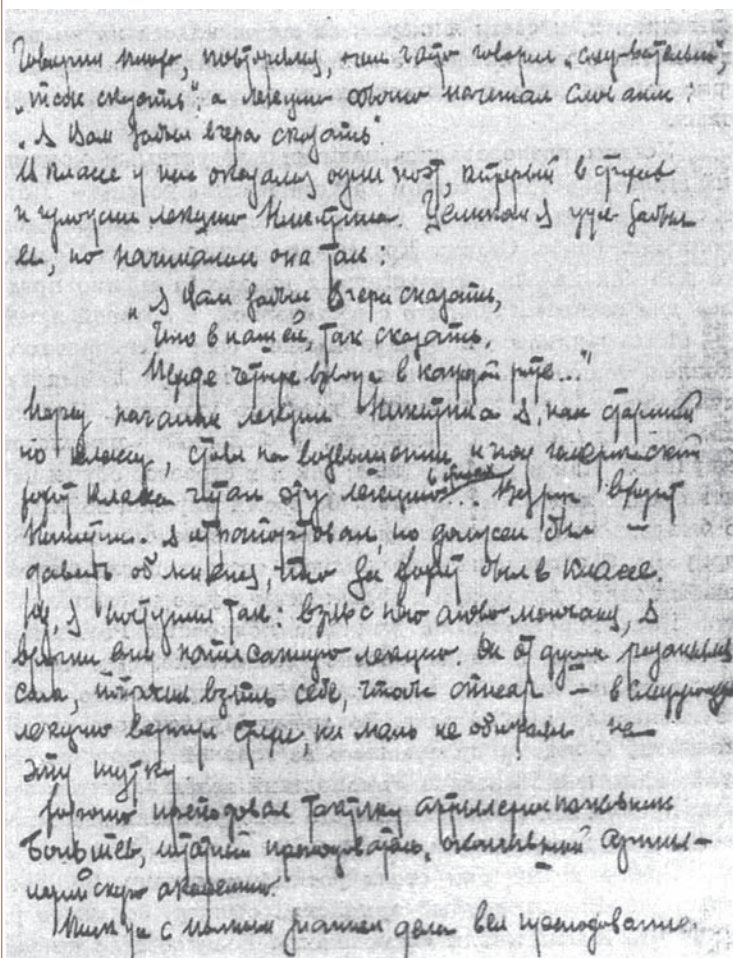 Говорил плохо, повторялся, очень часто говорил „следовательно",
„так сказать", а лекцию обычно начинал словами:
„Я Вам забыл вчера сказать".
В классе у нас оказался один поэт, который в стихах
и изложил лекцию Никитина. Целиком я уже забыл
ее, но начиналась она так:
„Я Вам забыл вчера сказать,
Что в нашей, так сказать,
четыре взвода в каждой роте..."
Перед началом лекции Никитина я, как старший
по классу, стоя на возвышении, и под гомерический
хохот класса читал эту лекцию в стихах... Вдруг входит
Никитин. Я отрапортовал, но должен был –
что за хохот был в классе.
Ну, я поступил так: взяв с него слово молчания, я
вручил ему написанную лекцию. Он от души
сам, взять себе, чтобы – в следующую
лекцию вернул стихи, ни мало не обиделся на
эту шутку.
Хорошо преподавал тактику артиллерии полковник
штатный преподаватель, окончивший артил-
лерийскую академию.
с полным знанием дела вел преподавание